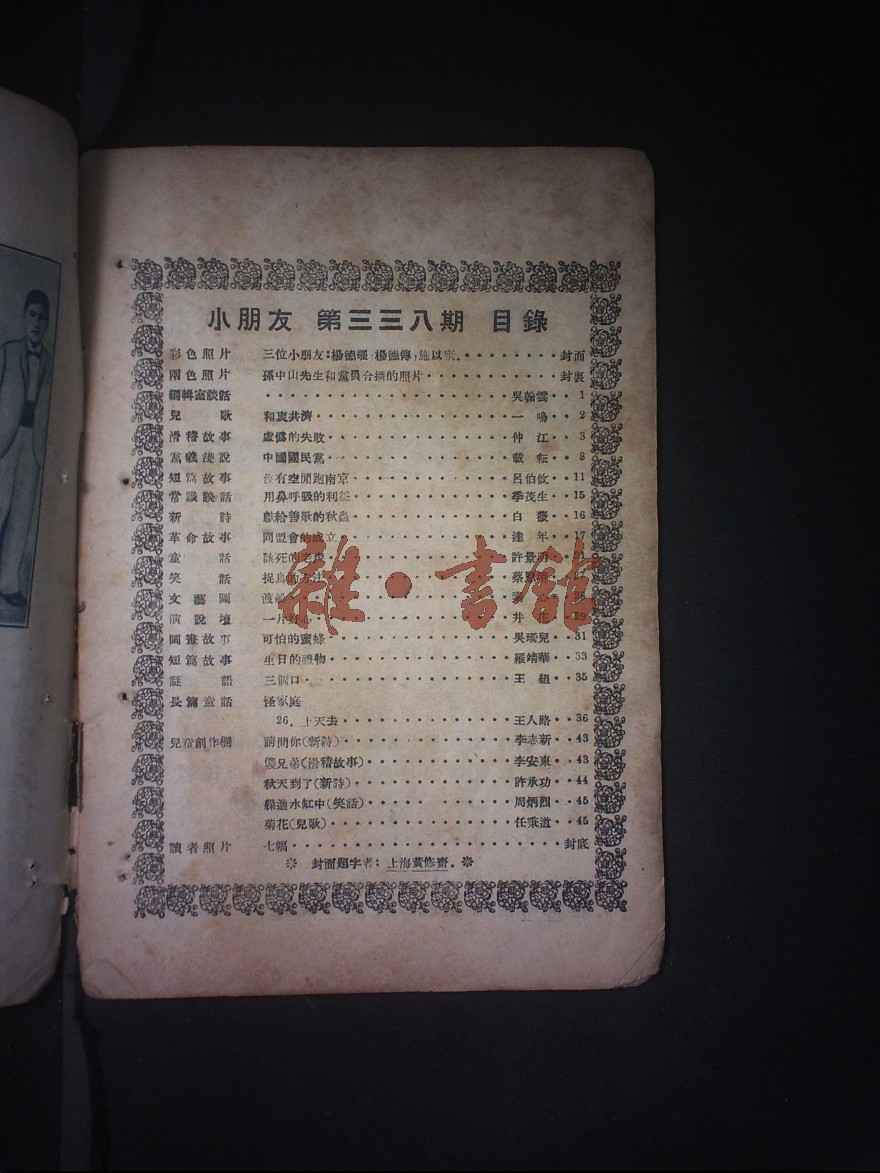 小朋友 第三三八期 目錄
彩色照片 三位小朋友：楊德 ，楊德傳，施以 。········封面
兩色照片 孫中山先生和黨員合攝的照片········封裏
編輯室談話 ········吳翰雲··1
兒歌 和衷共濟········一鳴··2
滑稽故事 虛僞的失敗········仲江··3
黨義淺說 中國國民黨········載耘··8
短篇故事 沒有空閒跑南京········呂伯攸··11
常識談話 用鼻呼吸的利益········季茂生··15
新詩 獻給善歌的秋蟲········白薇··16
革命故事 同盟會的成立········達年··17
童話 該死的老虎········許景明
笑話 捉鳥的方法········蔡
文藝園 渡船
演說壇 一片好心········井花··29
圖畫故事 可怕的蜜蜂········吳瑞兒··31
短篇故事 生日的禮物········羅靖華··33
謎語 三個口········王組··35
長篇童話 怪家庭
26. 上天去········王人路··36
兒童創作欄 請問你(新詩)········李志新··43
傻兄弟(滑稽故事)········李安東··43
秋天到了(新詩)········許承功··44
躲進水缸中(笑話)········周炳烈··45
菊花(兒歌)········任秉道··45
讀者照片 七幅········封底
※ 封面題字者：上海黃修齋。※
雜·書館